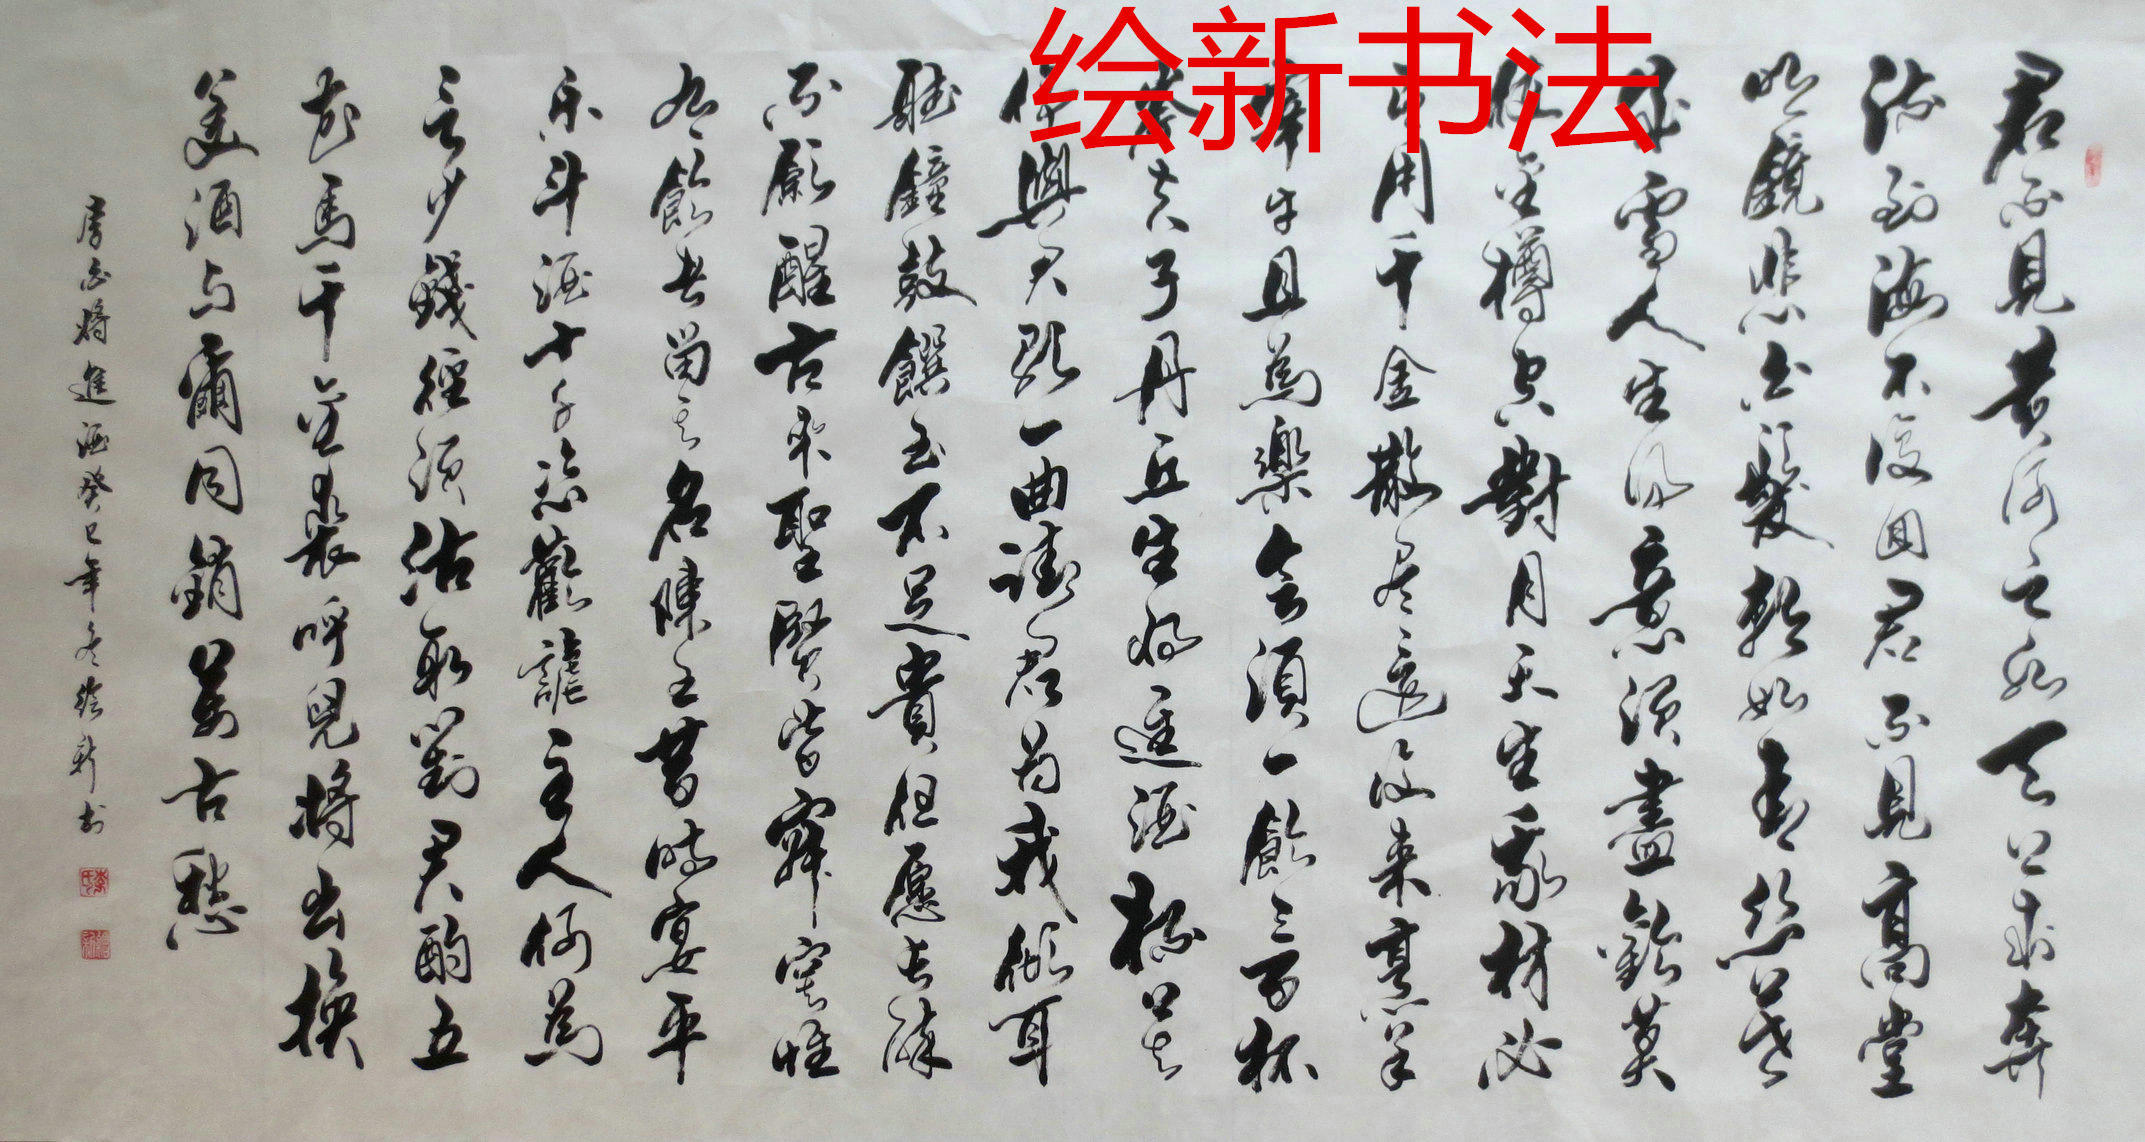 绘新书法
君不見黄河之水天上来奔
流到海不復回君不見高堂
明鏡悲白髮朝如青絲暮
成雪人生得意須盡歡莫
使金樽空對月天生我材必
有用千金散尽還復来烹羊
宰牛且為樂会須一飲三百杯
岑夫子丹丘生将進酒杯莫
停與君歌一曲請君為我傾耳
聽鐘鼓饌玉不足貴但愿长醉
不願醒古來聖賢皆寂寞惟
有飲者留其名陳王昔時宴平
乐斗酒十千恣歡謔主人何為
言少錢徑須沽取對君酌五
花馬千金裘呼兒將出換
美酒与爾同銷萬古愁
李白將進酒癸巳年冬绘新书
李氏